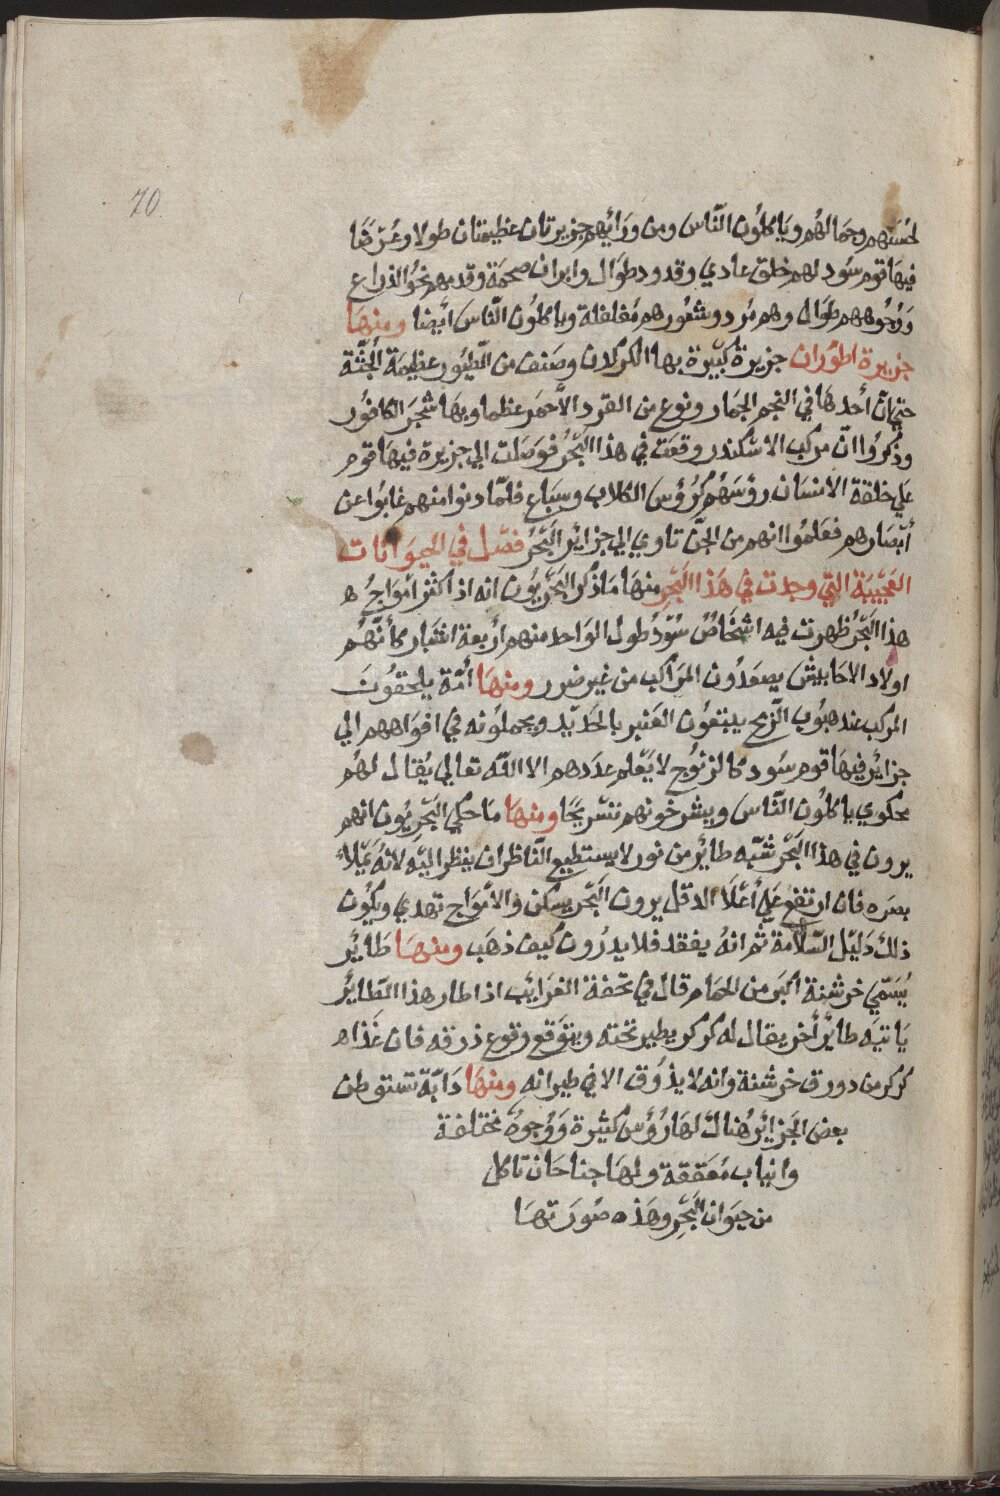 70
لحسنهم وجمالهم وياكلون النّاس ومن ورَائهم جزيرتان عظيمتان طولا وعرضًا
فيهَا قوم سُود لهم خلق عادي وقدود طوَال وابران ضخمة وقدمهم نحو الذراع
وَوُجُوههم طوَال وهم مُرد وشعُورهم مُفلفلة وياكلون النّاسَ ايَضا ومنهَا
جزيرة اطوَران جزيرة كبيَرة بها الكركدن وصَنف من الطيُور عظيمَة الجثّة
حتي انّ أحدهَا في الحجم الحمار ونوع من القرد الأحمَر عظما وبهَا شجَر الكافوُر
وذُكروُا انّ مركب الاسّكندر وقعَت في هذا البَحرُ فوَصَلت الي جزيرة فيهَا قوم
علي خلقة الانسَان رؤسَهُمْ كرُؤس الكلاب وسبَاع فلمّا دنوا منهم غابوُا عن
أبصَارهم فعَلموُا انهم من الجنّ تاوي الي جزائر البَحرُ فصَل في الحيوَانات
العَجيبَة التي وجدت في هَذا البَحْر منهَا مَا ذكر البَحريوُن انه اذا كثر امَوَاج
هذا البَحرُ ظهرت فيه اشخَاصٌ سُودُ طول الوَاحد منهم أربعة اشبَار كأنّهُم
اولاد الاحَابيش يصعَدُون المرَاكب من غير ضرر ومنهَا أمّة يلحقوُنَ
المركب عند هبُوب الرّيح يبتعُون العَنبر بالحَديد ويحملوُنه في افوَاههم الي
جزائر فيهَا قوم سُود كالزنوُج لا يَعلم عدَدهم الا الله تعَالي يُقال لهُم
محكوي ياكلوُن النّاس ويشرخونهم تشريحًا ومنهَا مَا حكي البَحريوُن انهم
يرون في هذا البَحْر شبْه طائر من نور لا يستطيع النّاظر ان ينظر اليَه لانهُ يَملأ
بصَره فان ارتفع عَلي أعْلاَ الدقل يرون البَحر يسكن والأموَاج تهدي ويكوُن
ذلكَ دَليْل السّلاَمة ثم انهُ يفقد فلا يدرُون كيف ذهَب ومنهَا طَائِر
يُسَمّي خرشنة اكبَر من الحمَام قال في تحفة الغرَائب اذا طار هذا الطّائر
يَاتيَه طائر أخر يقال له كركر يطير تحته ويتوَقع وقوع ذرقه فان غَذاه
كركر من دورق خرشنة وانه لا يذرُوق الا في طيرانه ومنهَا دَابّة تستوطن
بعض الجزائر هُنالك لهَا رُؤس كثيرة وَوُجوهُ مختلفة
وانياب مُعَققة ولهَا جناحَان تاكل
من حيوَان البَحْر وهَذه صُورَتهَا